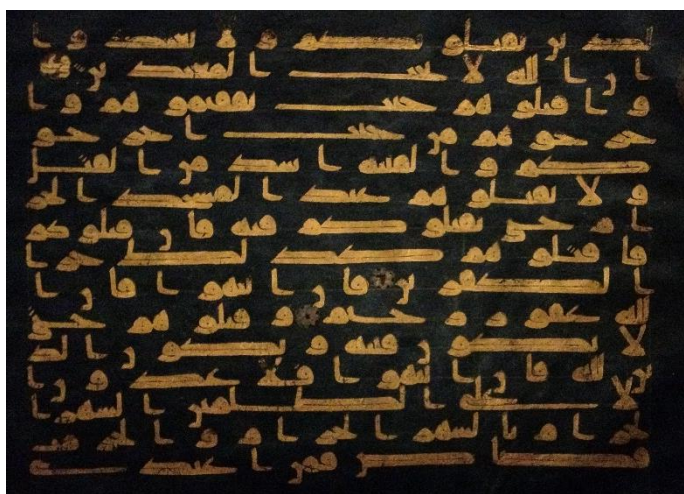 الذين يقتلونكم ولا تعتدوا
ان الله لا يحب المعتدين
واقتلوهم حيث ثقفتموهم وا
خرجوهم من حيث اخرجو
كم والفتنة اشد من القتل
ولا تقتلوهم عند المسجد الحر
ام حتى يقتلوكم فيه فان قتلوكم
فاقتلوهم كذلك جزا
الكفرين فان انتهوا فان
الله غفور رحيم وقتلوهم حتى
لا تكون فتنة ويكون الد
ين لله فان انتهوا فلا عدون ا
لا على الظلمين الشهر ا
لحرام بالشهر الحرام والحرمت
قصاص فمن اعتدى